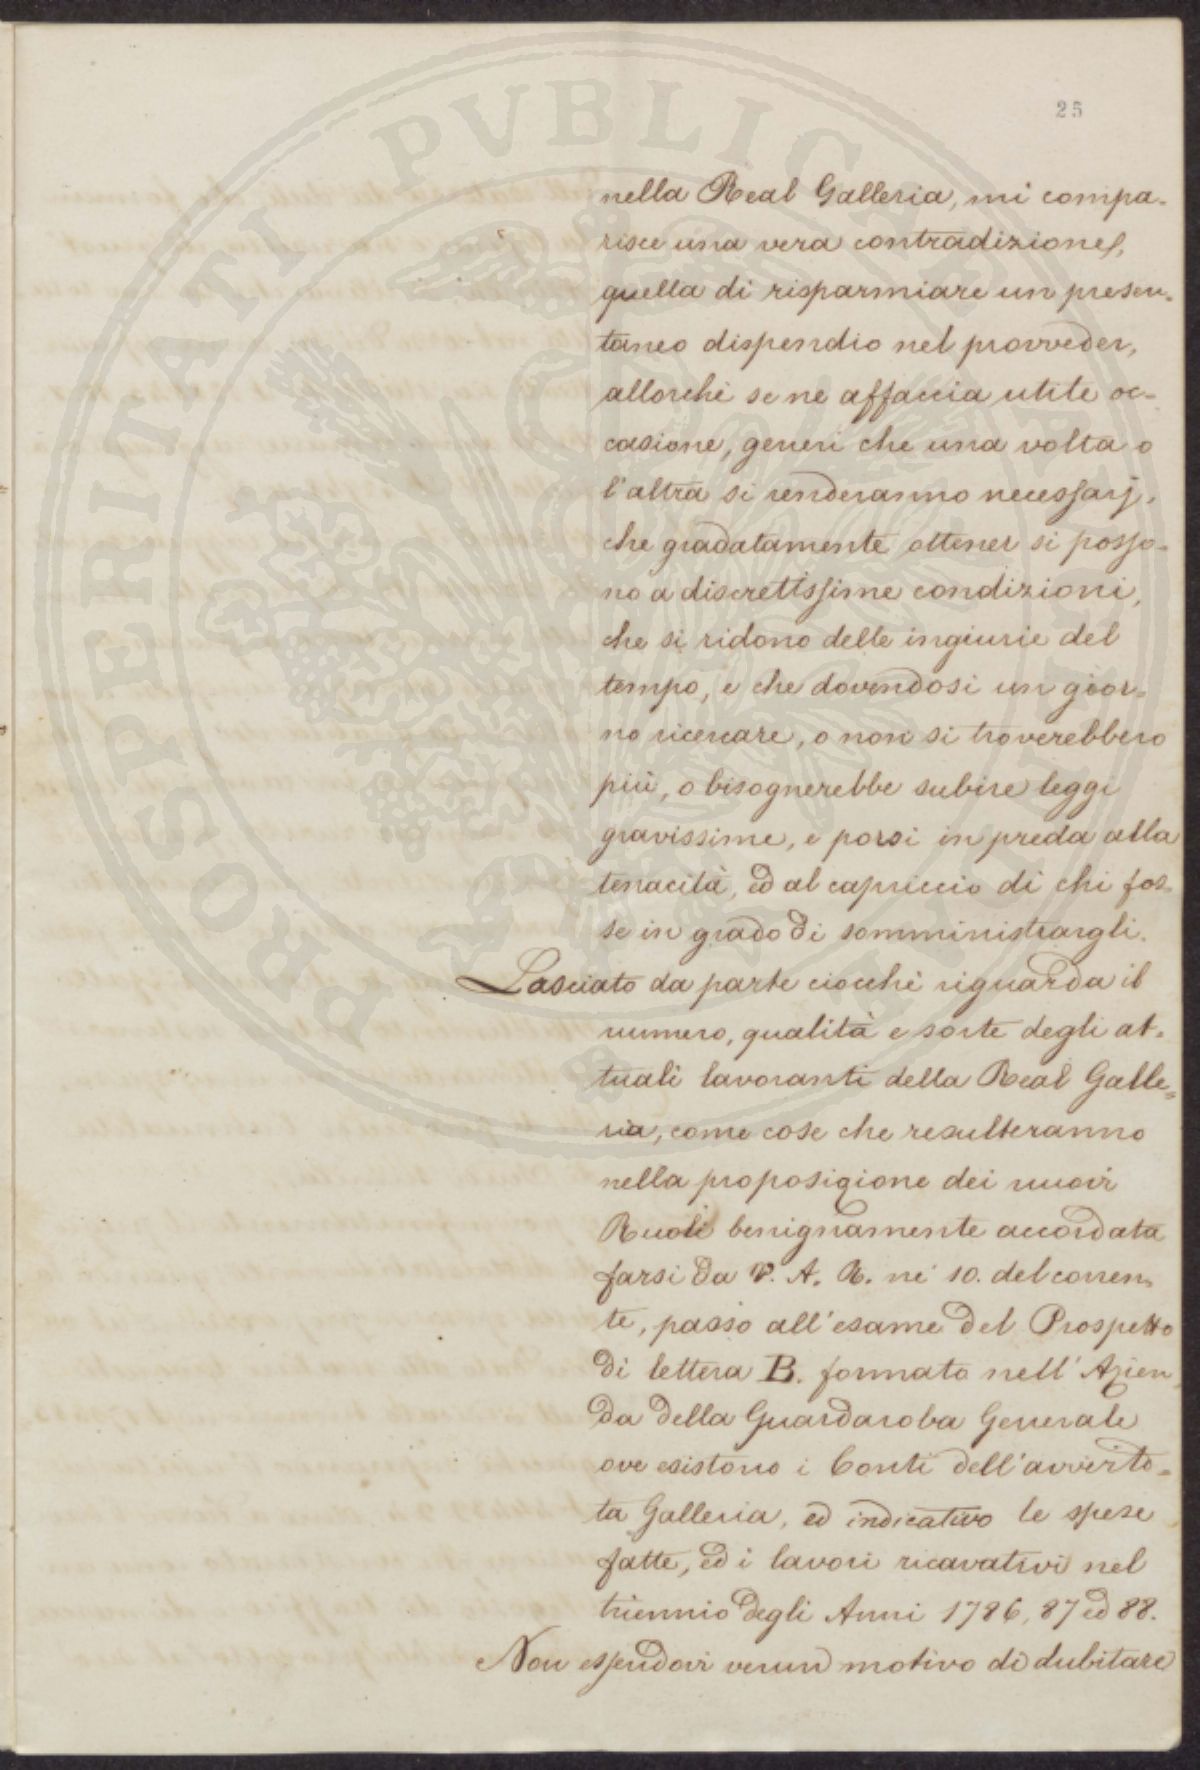 25
nella Real Galleria, mi compa-
risce una vera contradizione,
quella di risparmiare un presen-
taneo dispendio nel provveder,
allorchè se ne affaccia utile oc-
casione, generi che una volta o
l'altra si renderanno necessarj,
che gradatamente ottener si posso-
no a discretissime condizioni,
che si ridono delle ingiurie del
tempo, e che dovendosi un gior-
no ricercare, o non si troverebbero
più, o bisognerebbe subire leggi
gravissime, e porsi in preda alla
tenacità, ed al capriccio di chi fos-
se in grado di somministrargli.
Lasciato da parte ciocchè riguarda il
numero, qualità e sorte degli at-
tuali lavoranti della Real Galle-
ria, come cose che resulteranno
nella proposizione dei nuovi
Ruoli benignamente accordata
farsi da V. A. R. ne' 10. del corren-
te, passo all'esame del Prospetto
di lettera B. formato nell'Azien-
da della Guardaroba Generale
ove esistono i Conti dell'avverti-
ta Galleria, ed indicativo le spese
fatte, ed i lavori ricavativi nel
triennio degli Anni 1786, 87 ed 88.
Non essendovi verun motivo di dubitare
PROSPERITATI PVBLICAE